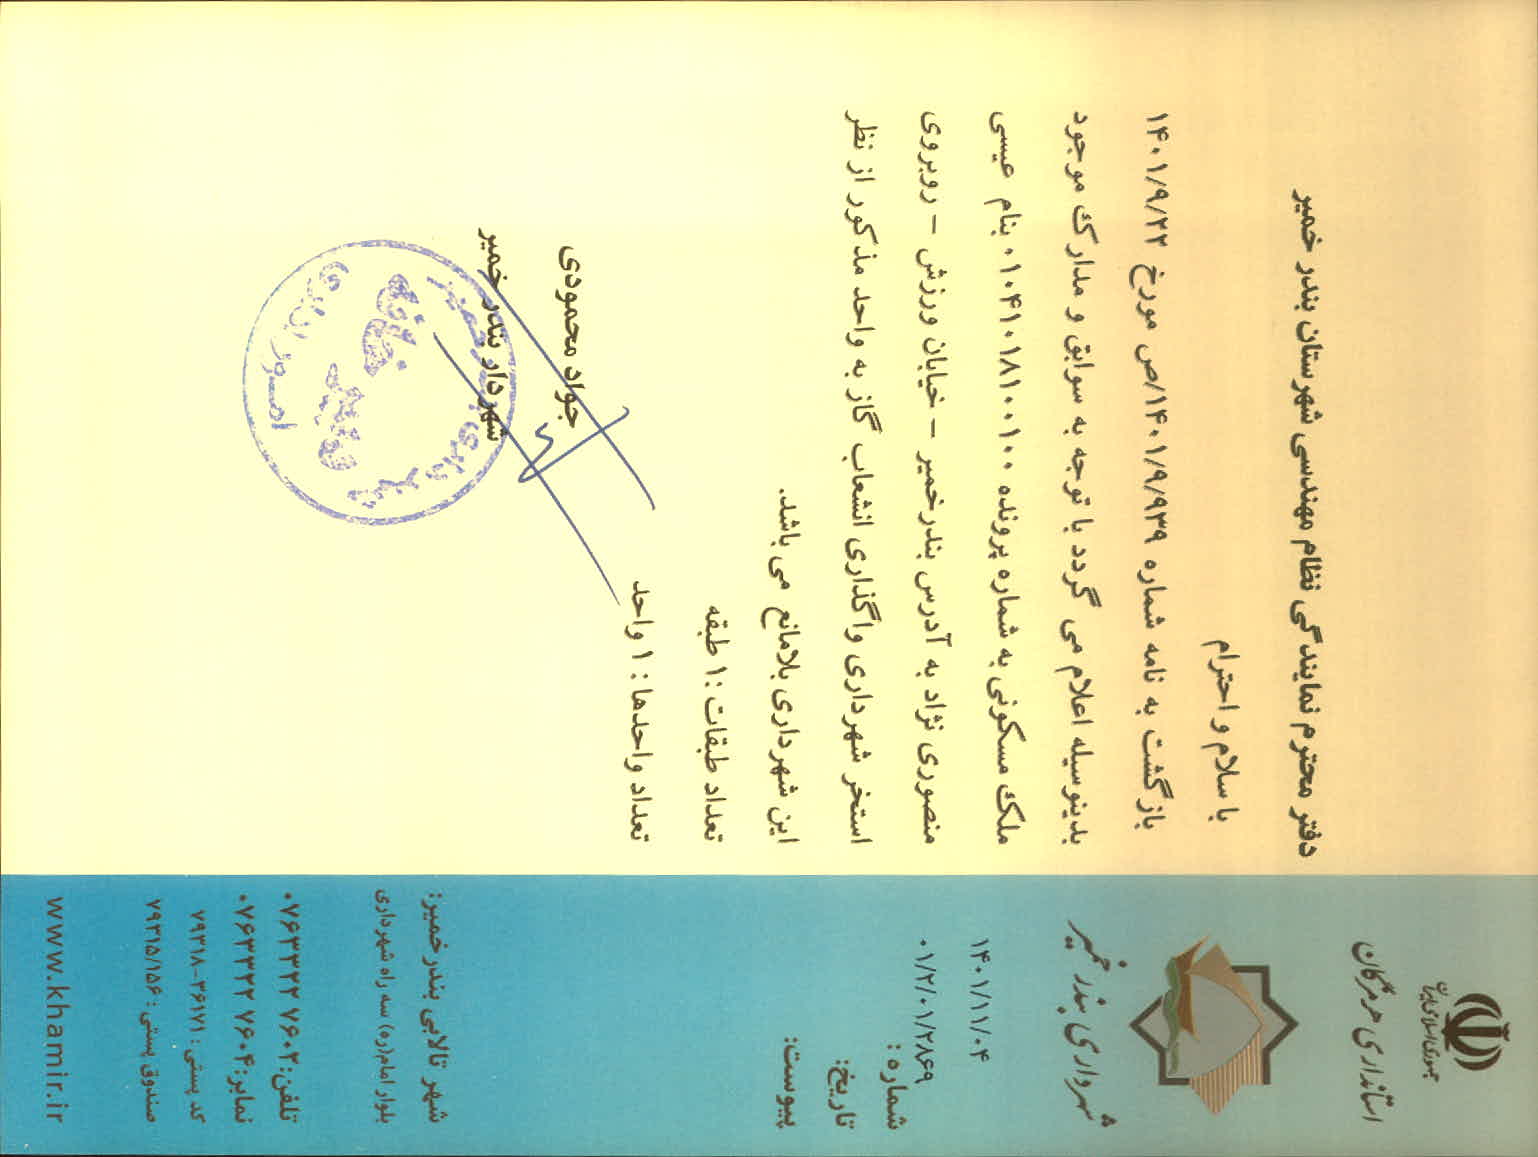 جمهوری اسلامی ایران
استانداری هرمزگان
شهرداری بندر خمیر
۱۴۰۱/۱۱/۰۴
۰۱/۲/۰۱/۲۸۶۹
شماره:
تاریخ:
پیوست:
دفتر محترم نمایندگی نظام مهندسی شهرستان بندر خمیر
با سلام و احترام
بازگشت به نامه شماره ۱۴۰۱/۹/۹۳۹/ص مورخ ۱۴۰۱/۹/۲۲
بدینوسیله اعلام می گردد با توجه به سوابق و مدارک موجود
ملک مسکونی به شماره پرونده ۰۱۰۴۱۰۱۸۱۰۰۱۰۰ بنام عیسی
منصوری نژاد به آدرس بندرخمیر - خیابان ورزش - روبروی
استخر شهرداری واگذاری انشعاب گاز به واحد مذکور از نظر
این شهرداری بلامانع می باشد.
تعداد طبقات :۱ طبقه
تعداد واحدها : ۱ واحد
جواد محمودی
شهردار بندر خمیر
شهرداری بندر خمیر
امور اداری
شهر تالابی بندرخمیر:
بلوار امام(ره) سه راه شهرداری
تلفن: ۰۷۶۳۳۲۲۷۶۰۲
نمابر: ۰۷۶۳۳۲۲۷۶۰۴
کد پستی : ۳۶۱۷۱-۷۹۳۱۸
صندوق پستی : ۷۹۳۱۵/۱۵۶
www.khamir.ir